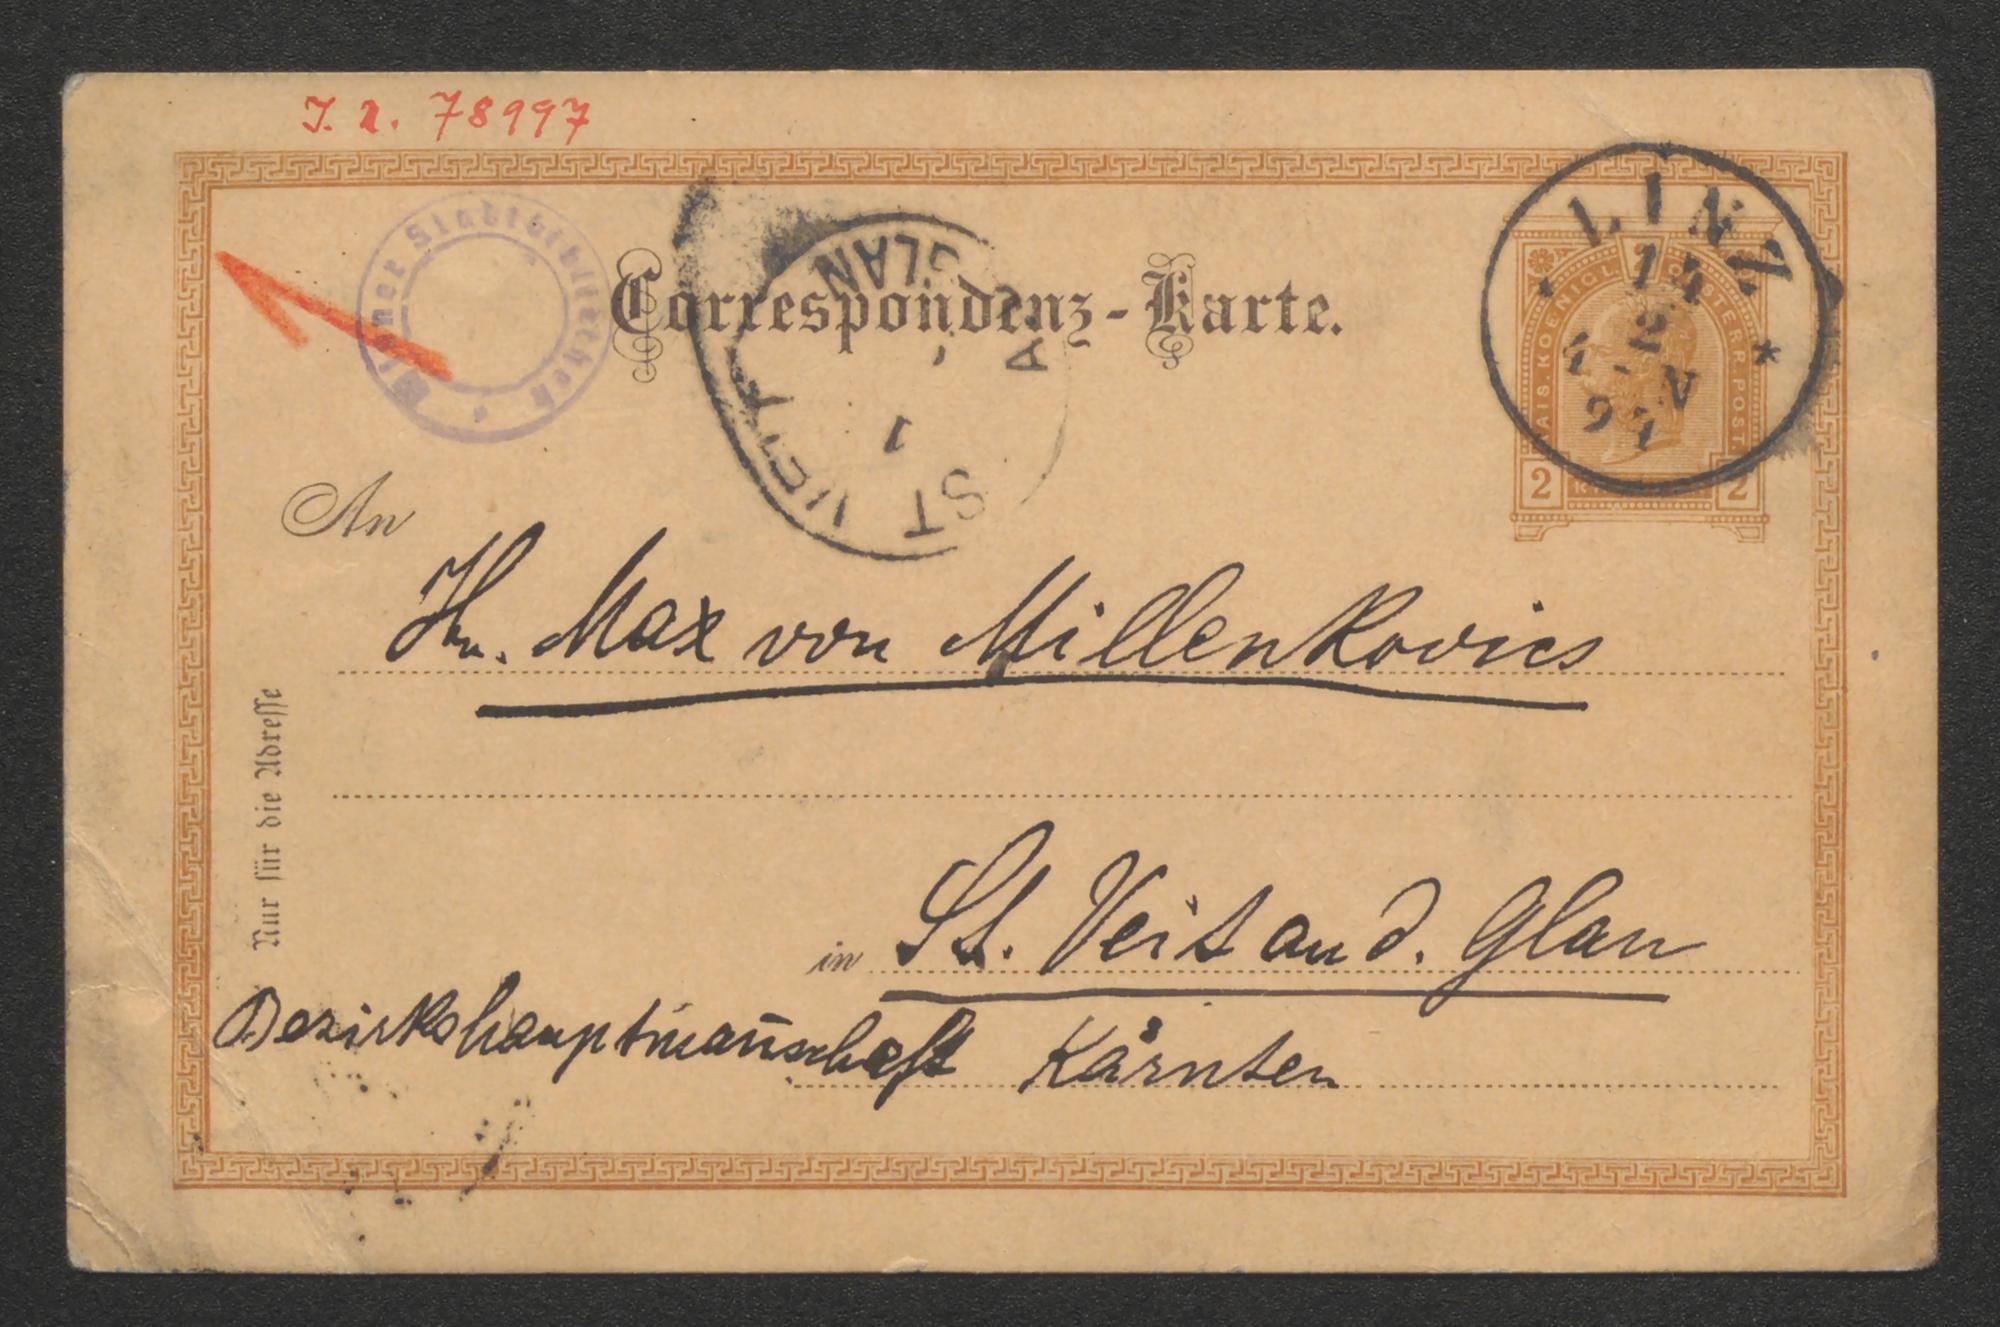 J. N. 78997
Wiener Stadtbibliothek
Correspondenz-Karte.
ST. VEIT
A
GLAN
1
LINZ
14
2
94
KAIS. KOENIGL. OESTERR. POST
2 2
An
Hn. Max von Millenkovics
in St. Veit an d. Glan
Bezirkshauptmanschaft Kärnten
Nur für die Adresse